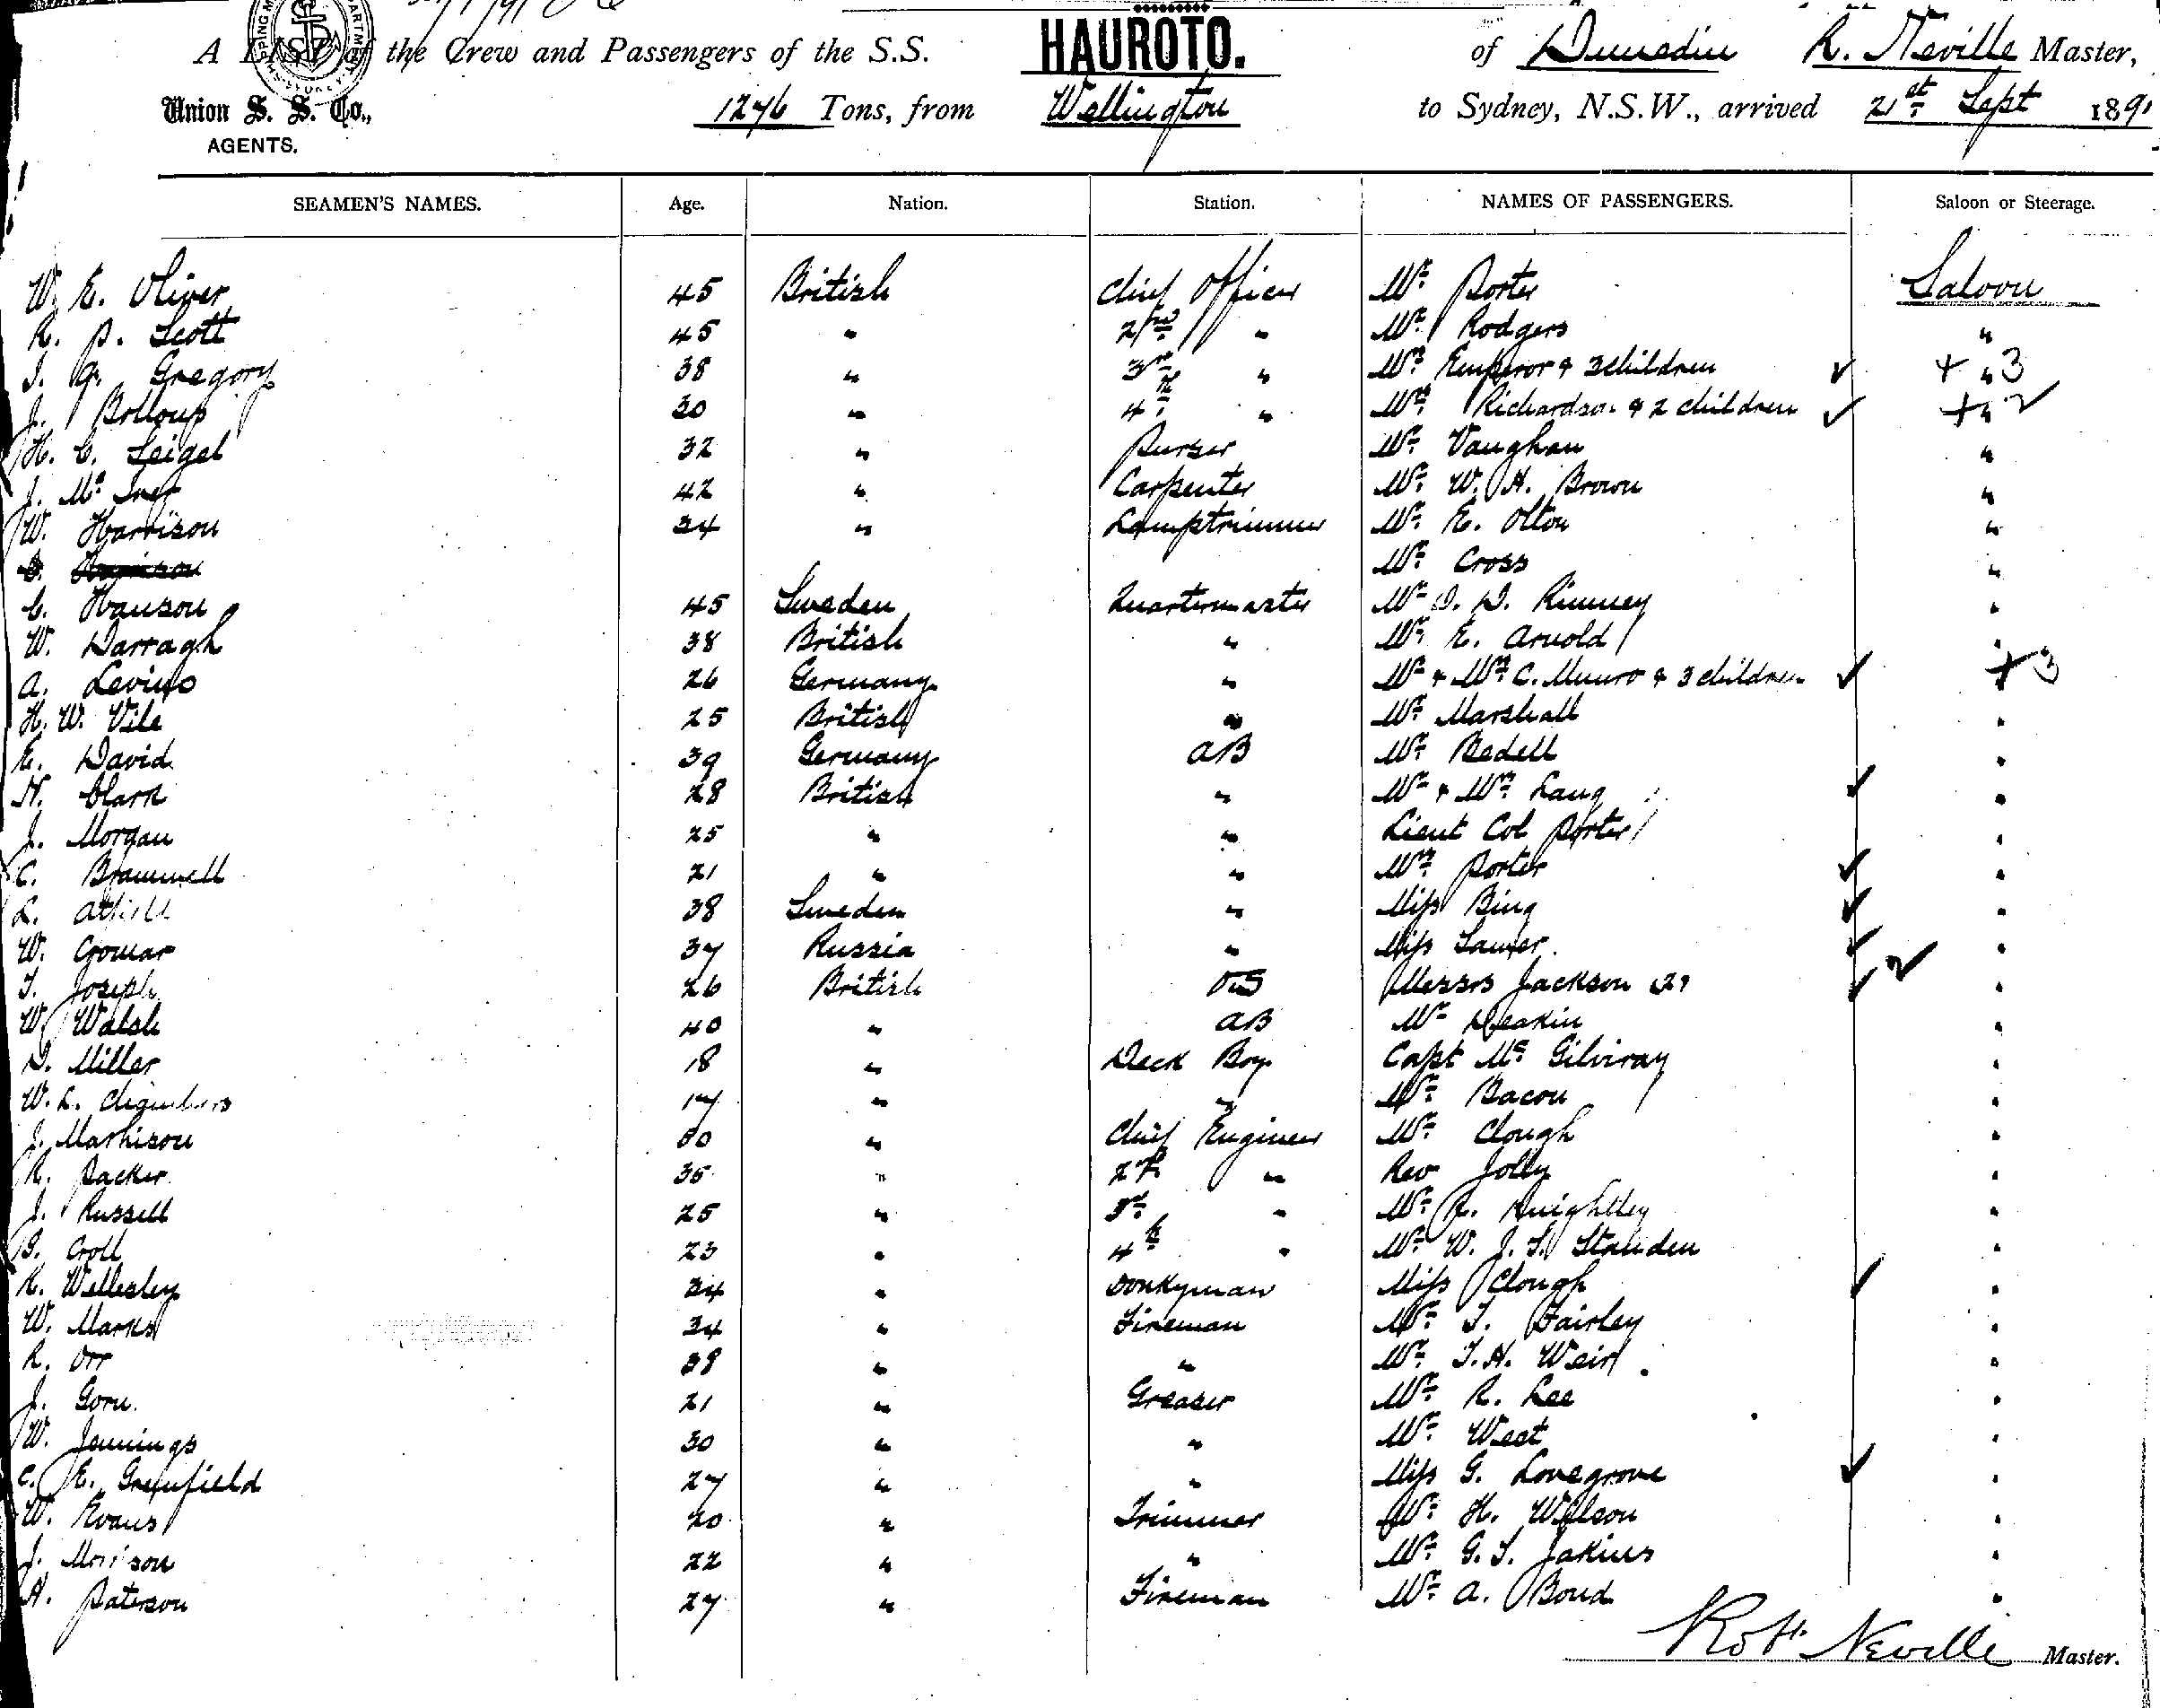 A LIST of the Crew and Passengers of the S.S. HAUROTO. of Dunedin R. Neville Master,
Union S. S. Co., 1276 Tons, from Wellington to Sydney, N.S.W., arrived 21st Sept 1891
AGENTS.
SEAMEN'S NAMES. Age. Nation. Station. NAMES OF PASSENGERS. Saloon or Steerage.
W. E. Oliver 45 British Chief Officer Mr Porter Saloon
R. P. Scott 45 " 2nd " Mr Rodgers "
J. G. Gregory 38 " 3rd " Mrs Emperor & 3 children ✓ + " 3
J. Bolloup 30 " 4th " Mrs Richardson & 2 children ✓ + " 2
H. C. Seigel 32 " Purser Mr Vaughan "
J. Mc Iver 42 " Carpenter Mr W. H. Brown "
W. Harrison 34 " Lamptrimmer Mr E. Olton "
Mr Cross "
C. Hanson 45 Sweden Quartermaster Mr D. D. Kinney "
W. Darragh 38 British " Mr E. Arnold "
A. Levins 26 Germany " Mr & Mrs C. Munro & 3 children ✓ + 3
H. W. Vile 25 British " Mr Marshall "
E. David 39 Germany AB Mr Bedell "
N. Clark 28 British " Mr & Mrs Lang ✓ "
J. Morgan 25 " " Lieut Col Porter "
C. Bramwell 21 " " Mrs Porter ✓ "
L. 38 Sweden " Miss Bing ✓ "
W. Gomar 37 Russia " Miss ✓ "
T. Joseph 26 British OS Messrs Jackson (2) ✓ 2 "
W. Walsh 40 " AB Mr Deakin "
D. Miller 18 " Deck Boy Capt Mc Gilviray "
W. L. 17 " " Mr Bacon "
J. Mathison 50 " Chief Engineer Mr Clough "
R. Packer 35 " 2nd " Rev Jolly "
J. Russell 25 " 3rd " Mr R. Knightley "
G. Croll 23 " 4th " Mr W. J. S. Standen "
R. Wellesley 34 " Donkyman Miss Clough ✓ "
W. Marks 34 " Fireman Mr T. Fairley "
R. Orr 38 " " Mr T. H. Weir "
J. Gorn 21 " Greaser Mr R. Lee "
W. Jennings 30 " " Mr West "
C. E. Greenfield 27 " " Miss G. Lovegrove ✓ "
W. Evans 20 " Trimmer Mr H. Wilson "
J. Morrison 22 " " Mr G. S. Jakins "
H. Paterson 27 " Fireman Mr A. Bond "
Robt. Neville Master.